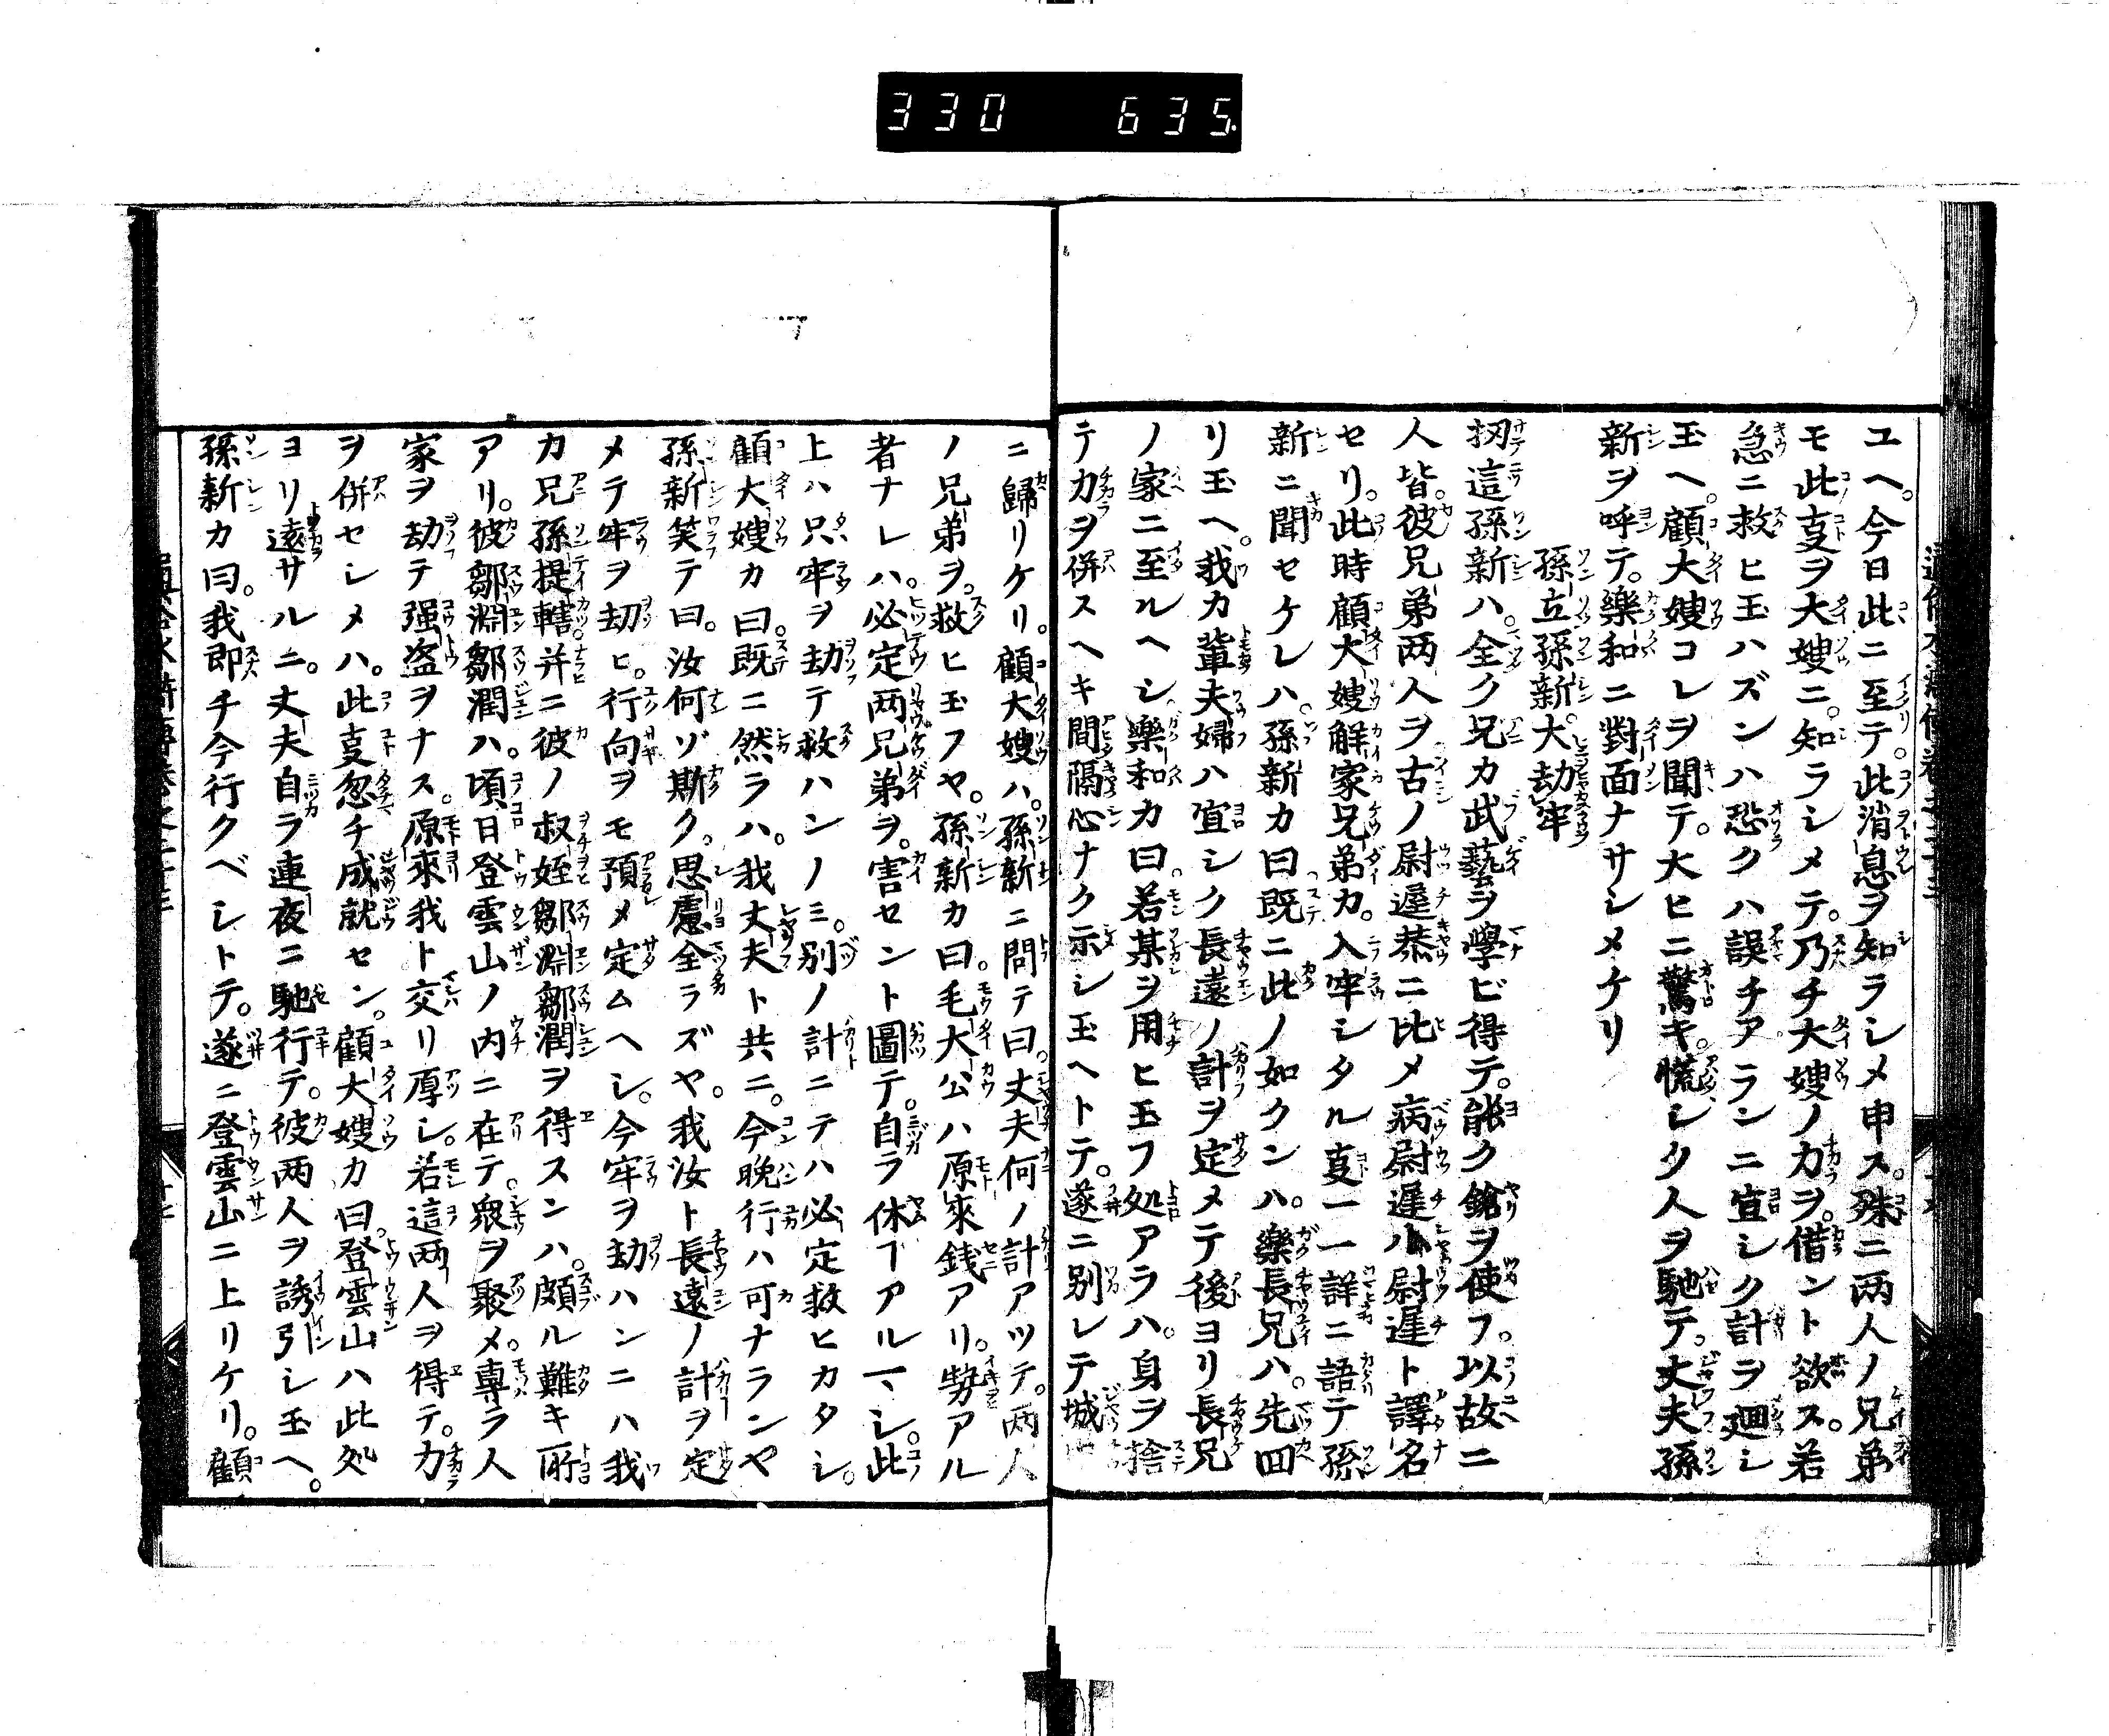 330 635
ユヘ。今日此ニ至テ。此消息ヲ知ラシメ申ス。殊ニ両人ノ兄弟
モ此叓ヲ大嫂ニ。知ラシメテ。乃チ大嫂ノ力ヲ。借ント欲ス。若
急ニ救ヒ玉ハズンハ恐クハ誤チアランニ宜シク計ヲ廻シ
玉ヘ。顧大嫂コレヲ聞テ。大ヒニ驚キ。慌シク人ヲ馳テ。丈夫孫
新ヲ呼テ。樂和ニ對面ナサシメケリ
孫立孫新。大劫牢
扨這孫新ハ。全ク兄カ武藝ヲ學ビ得テ。能ク鎗ヲ使フ。以故ニ
人皆。彼兄弟両人ヲ古ノ尉遅恭ニ比メ病尉遅小尉遅ト譯名
セリ。此時顧大嫂解家兄弟カ。入牢シタル叓一一詳ニ語テ孫
新ニ聞セケレハ。孫新カ曰既ニ此ノ如クンハ。樂長兄ハ。先回
リ玉ヘ。我カ輩夫婦ハ宜シク長遠ノ計ヲ定メテ後ヨリ長兄
ノ家ニ至ルヘシ。樂和カ曰若某ヲ用ヒ玉フ処アラハ。身ヲ捨
テ力ヲ併スヘキ間隔心ナク示シ玉ヘトテ。遂ニ別レテ城
ニ歸リケリ。顧大嫂ハ。孫新ニ問テ曰。丈夫何ノ計アツテ。両人
ノ兄弟ヲ。救ヒ玉フヤ。孫新カ曰毛大公ハ原來銭アリ。勢アル
者ナレハ。必定両兄弟ヲ。害セント圖テ。自ラ休ヿアルヘシ。此
上ハ只牢ヲ劫テ救ハンノミ。別ノ計ニテハ必定救ヒカタシ。
顧大嫂カ曰。既ニ然ラハ。我丈夫ト共ニ。今晩行ハ可ナランヤ
孫新笑テ曰。汝何ゾ斯ク。思慮全ラズヤ。我汝ト長遠ノ計ヲ定
メテ牢ヲ劫ヒ。行向ヲモ預メ定ムヘシ。今牢ヲ劫ハンニハ我
カ兄孫提轄并ニ彼ノ叔姪鄒淵鄒潤ヲ得スンハ。頗ル難キ所
アリ。彼鄒淵鄒潤ハ。頃日登雲山ノ内ニ在テ。衆ヲ聚メ。專ラ人
家ヲ劫テ强盗ヲナス。原來我ト交リ厚シ。若這両人ヲ得テ。力
ヲ併セシメハ。此叓忽チ成就セン。顧大嫂カ曰。登雲山ハ此処
ヨリ遠サルニ。丈夫自ラ連夜ニ馳行テ。彼両人ヲ誘引シ玉ヘ。
孫新カ曰。我即チ今行クベシトテ。遂ニ登雲山ニ上リケリ。顧